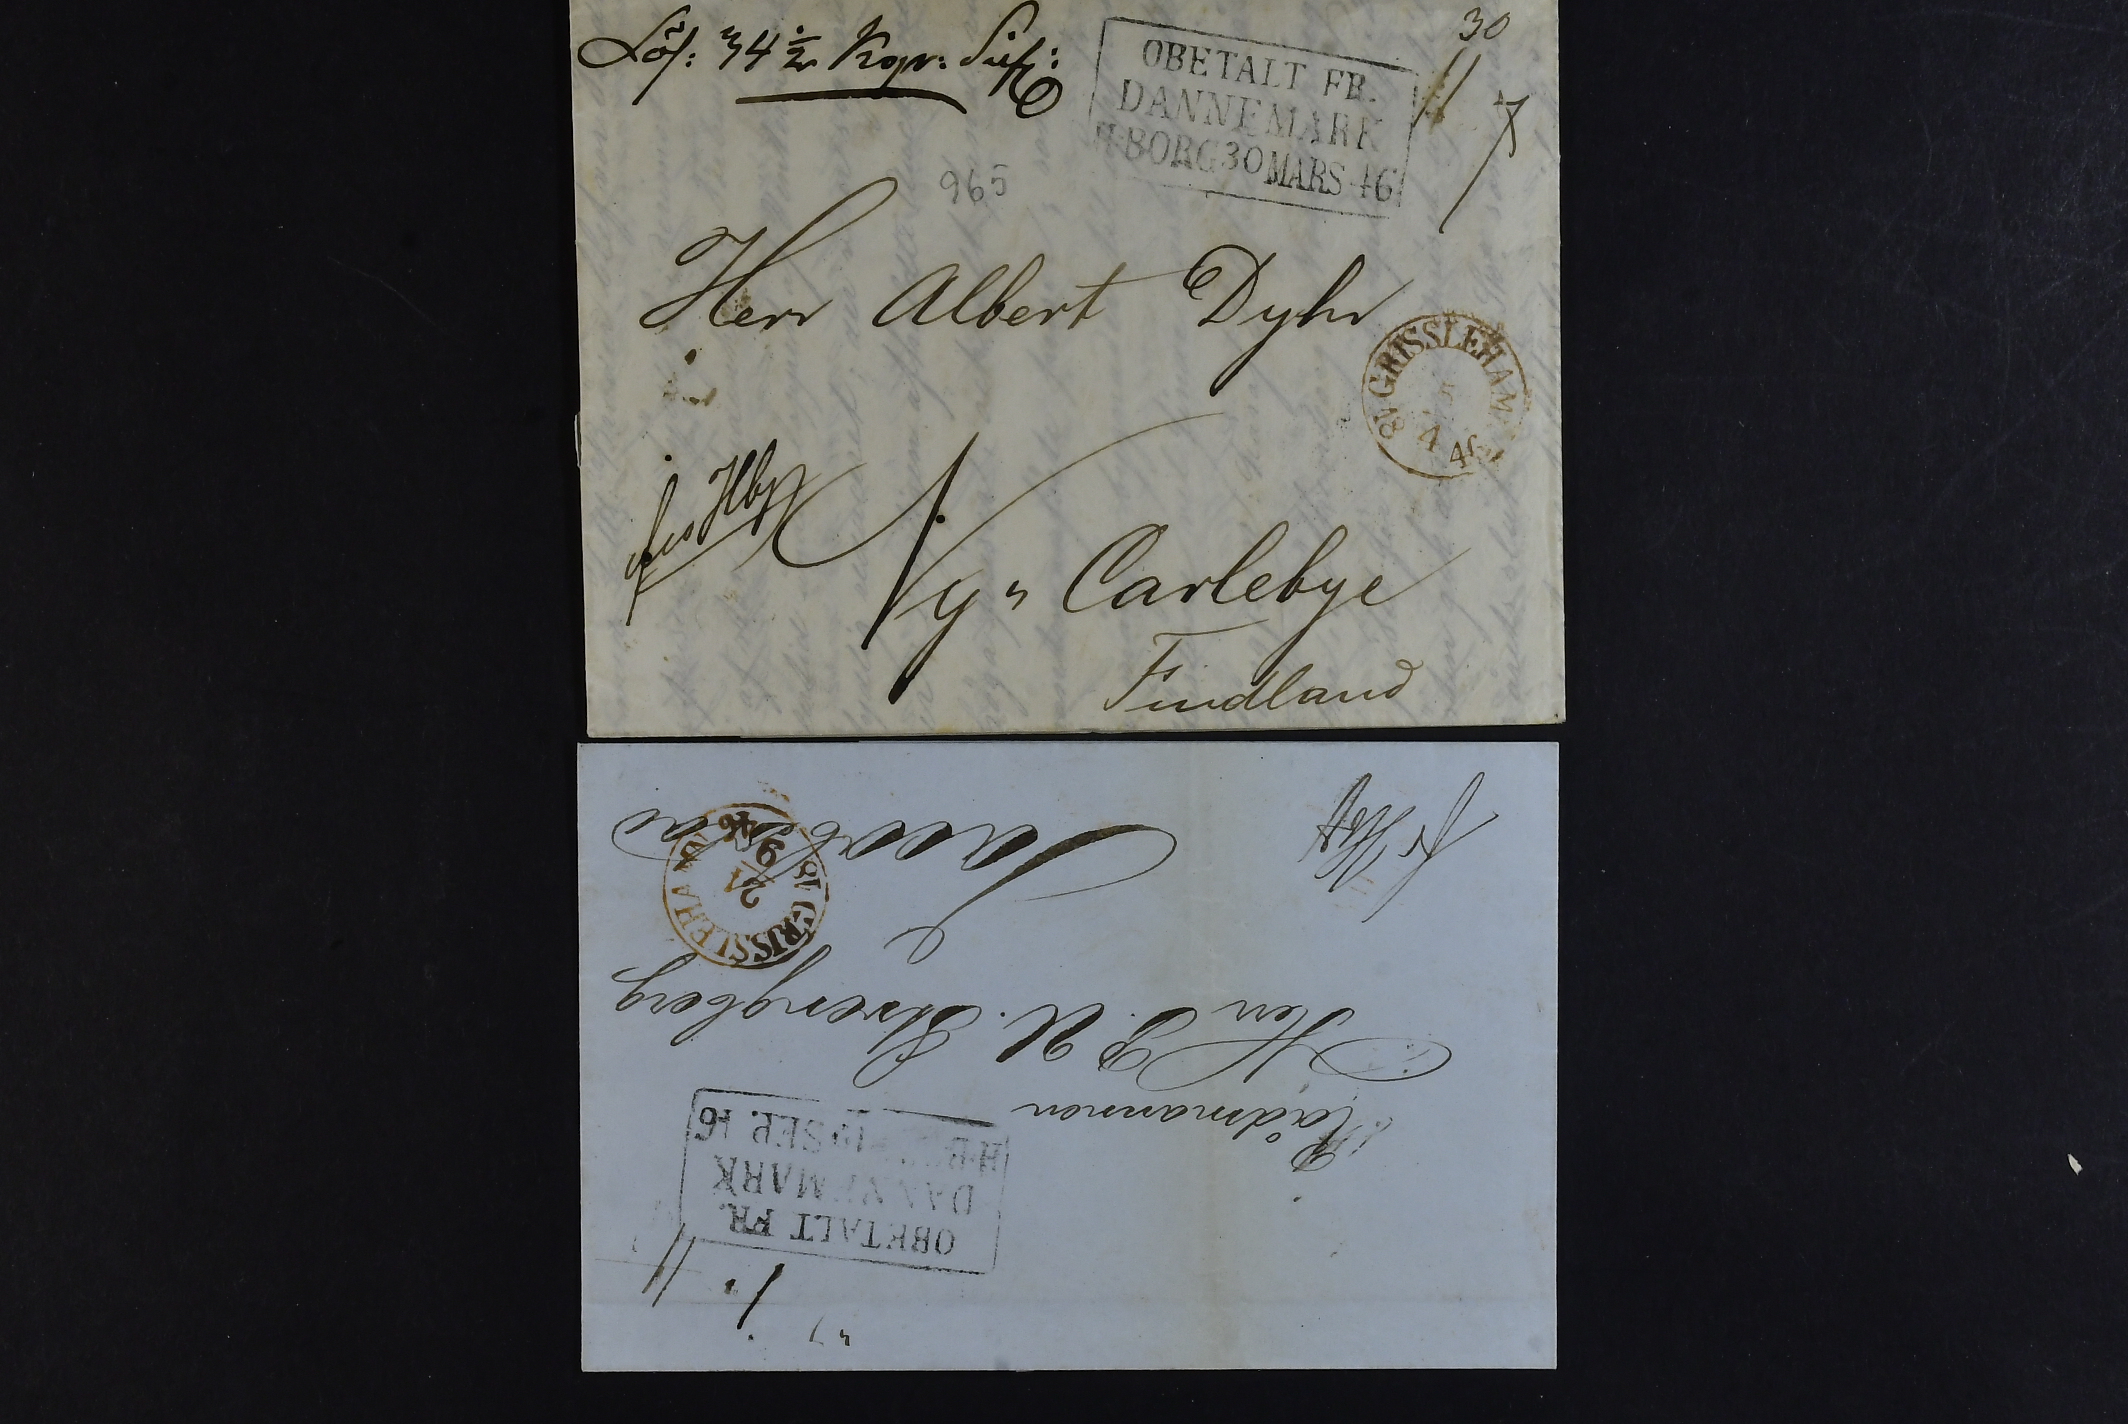 Lös: 34 ½ Kop: Silf:
30
OBETALT FR.
DANNEMARK
H-BORG 30 MARS 46
965
Herr Albert Dyhr
GRISSLEHAMN
5
4
18 46
Ny Carlebye
Findland
OBETALT FR.
DANNEMARK
SEP. 46
Rådmannen
Herr P. U. Strengberg
Jacobstad
GRISSLEHAMN
21
9
18 46